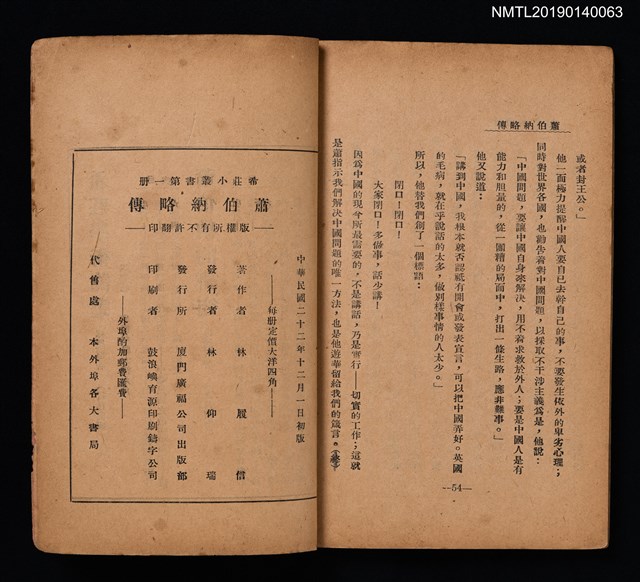 NMTL20190140063
蕭伯納略傳
或者封王公。」
他一面極力提醒中國人要自已去幹自己的事，不要發生依外的卑劣心理；
同時對世界各國，也勸告着對中國問題，以採取不干涉主義爲是，他說：
「中國問題，要讓中國自身來解決，用不着求救於外人；要是中國人是有
能力和胆量的，從一團糟的局面中，打出一條生路，應非難事。」
他又說道：
「講到中國，我根本就否認祗有開會或發表宣言，可以把中國弄好。英國
的毛病，就在乎說話的太多，做別樣事情的人太少。」
所以，他替我們創了一個標題：
閉口！閉口！
大家閉口！多做事，話少講！
因爲中國的現今所最需要的，不是講話，乃是實行——切實的工作；這就
是蕭指示我們解決中國問題的唯一方法，也是他遊華留給我們的箴言。（完）
—54—
希莊小叢書第一册
蕭伯納略傳
—版權所有不許翻印—
中華民國二十二年十二月一日初版
——每册定價大洋四角——
著作者　林履信
發行者　林仰瑞
發行所　廈門廣福公司出版部
印刷者　鼓浪嶼育源印刷鑄字公司
——外埠酌加郵費匯費——
代售處　本外埠各大書局